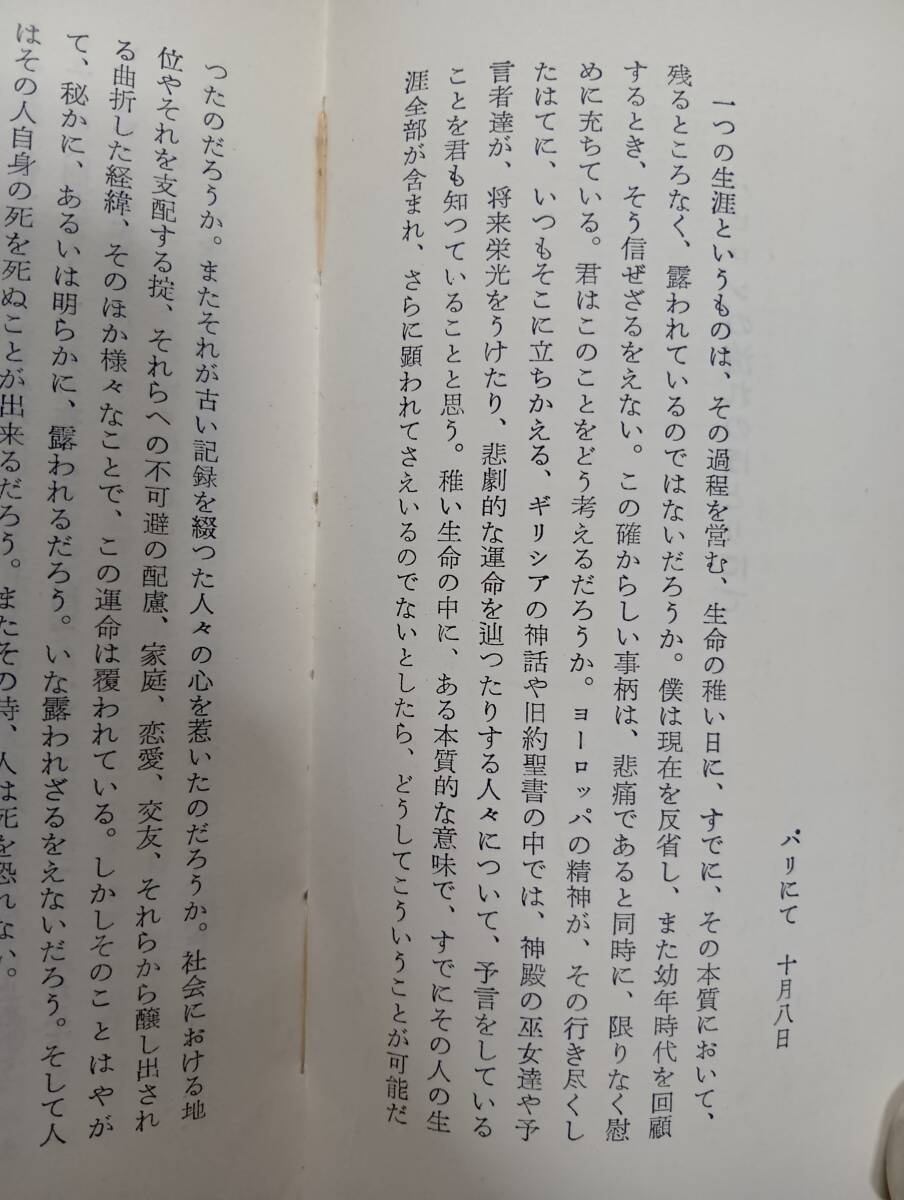 パリにて　十月八日
一つの生涯というものは、その過程を営む、生命の稚い日に、すでに、その本質において、
残るところなく、露われているのではないだろうか。僕は現在を反省し、また幼年時代を回顧
するとき、そう信ぜざるをえない。この確からしい事柄は、悲痛であると同時に、限りなく慰
めに充ちている。君はこのことをどう考えるだろうか。ヨーロッパの精神が、その行き尽くし
たはてに、いつもそこに立ちかえる、ギリシアの神話や旧約聖書の中では、神殿の巫女達や予
言者達が、将来栄光をうけたり、悲劇的な運命を辿つたりする人々について、予言をしている
ことを君も知つていることと思う。稚い生命の中に、ある本質的な意味で、すでにその人の生
涯全部が含まれ、さらに顕われてさえいるのでないとしたら、どうしてこういうことが可能だ
つたのだろうか。またそれが古い記録を綴つた人々の心を惹いたのだろうか。社会における地
位やそれを支配する掟、それらへの不可避の配慮、家庭、恋愛、交友、それらから醸し出され
る曲折した経緯、そのほか様々なことで、この運命は覆われている。しかしそのことはやが
て、秘かに、あるいは明らかに、露われるだろう。いな露われざるをえないだろう。そして人
はその人自身の死を死ぬことが出来るだろう。またその時、人は死を恐れない。